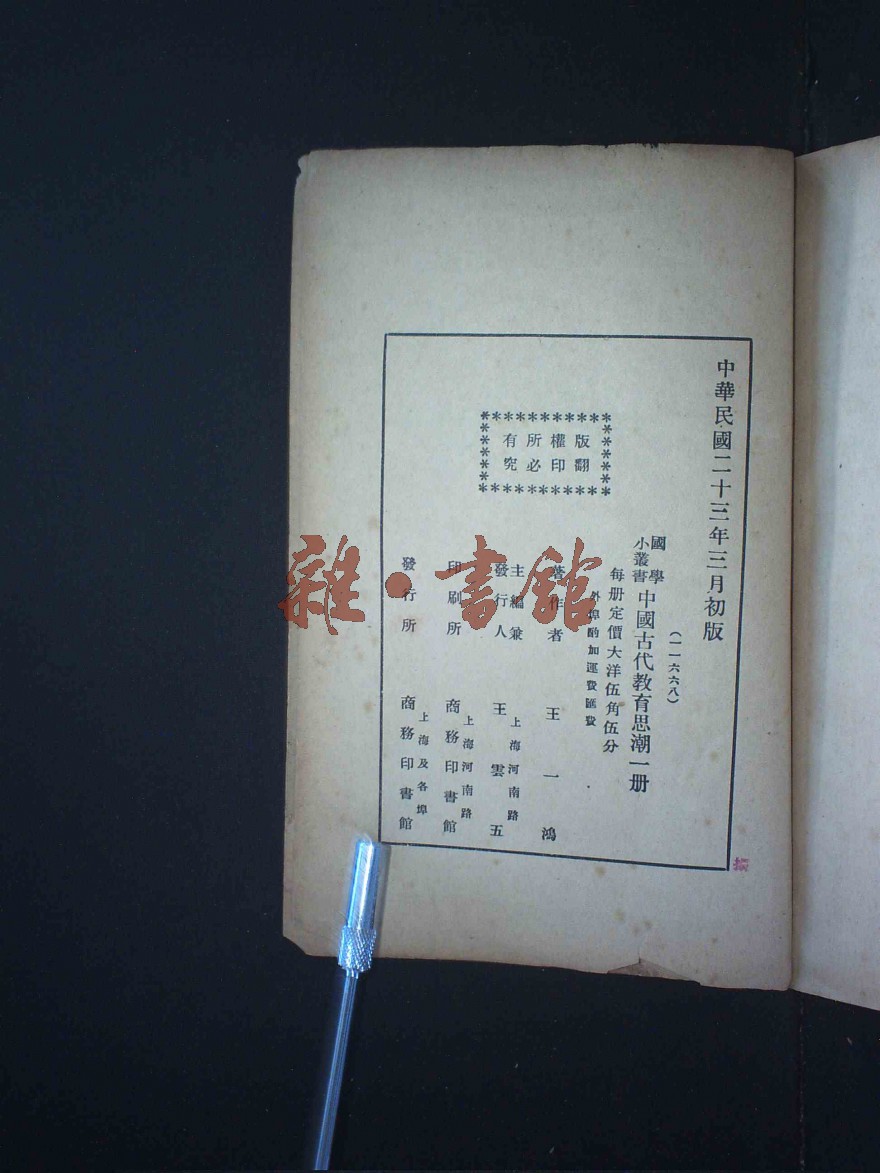 中華民國二十三年三月初版
(一一六六八)
國學小叢書 中國古代教育思潮一册
每册定價大洋伍角伍分
外埠酌加運費匯費
版權所有
翻印必究
著作者 王一鴻
主編兼發行人 王雲五
上海河南路
印刷所 商務印書館
上海河南路
發行所 商務印書館
上海及各埠
雜·書館